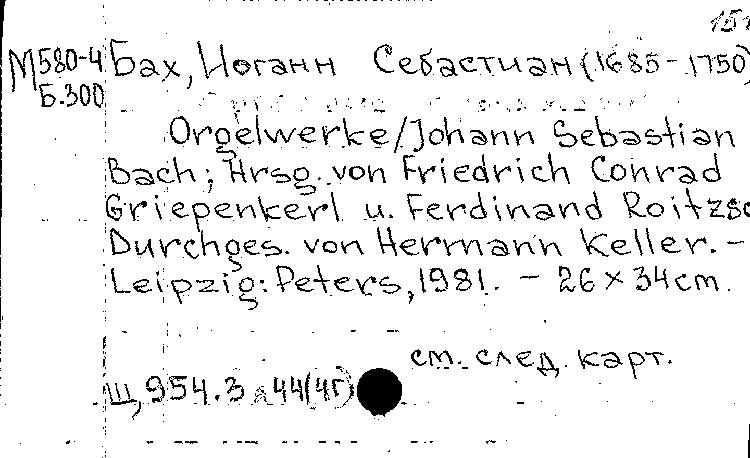 М580-4 Бах, Иоганн Себастиан (1685-1750)
Б.300
Orgelwerke/Johann Sebastian
Bach; Hrsg. von Friedrich Conrad
Griepenkerl u. Ferdinand Roitzsc
Durchges. von Hermann Keller. –
Leipzig: Peters, 1981. – 26 × 34 cm.
см. след. карт.
Щ 954.3 44(4Г)